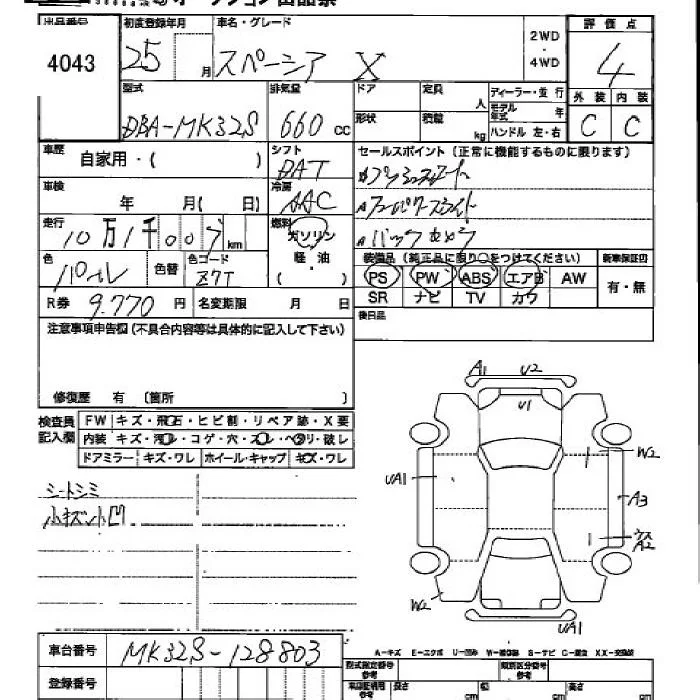 出品番号 初度登録年月 車名・グレード 評価点
4043 25 月 スペーシア X 2WD・4WD 4
型式 排気量 ドア 定員 人 ディーラー・並行 外装 内装
DBA-MK32S 660 cc 形状 積載 kg モデル年式 年 C C
ハンドル 左・右
車歴 自家用・( ) シフト DAT セールスポイント (正常に機能するものに限ります)
車検 年 月( 日) 冷房 AAC
走行 10万1千007 km 燃料 ガソリン・軽油 ( )
色 パール 色替 色コード Z7T 装備品 (純正品に限り○をつけてください) 新車保証書
PS PW ABS エアB AW 有・無
SR ナビ TV カワ
R券 9.770 円 名変期限 月 日 後日品
注意事項申告欄 (不具合内容等は具体的に記入して下さい)
修復歴 有 〔箇所 〕
検査員記入欄 FW キズ・飛石・ヒビ割・リペア跡・X要
内装 キズ・汚レ・コゲ・穴・スレ・ヘタリ・破レ
ドアミラー キズ・ワレ ホイール・キャップ キズ・ワレ
シートシミ
小キズ小凹
A1 U2
U1
W2
UA1
A3
A2
W2
UA1
車台番号 MK32S-128803
A-キズ E-エクボ U-凹み W-補修跡 S-サビ C-腐食 XX-交換済
登録番号 型式指定番号 参考 類別区分番号 参考
長さ cm 幅 cm 高さ cm